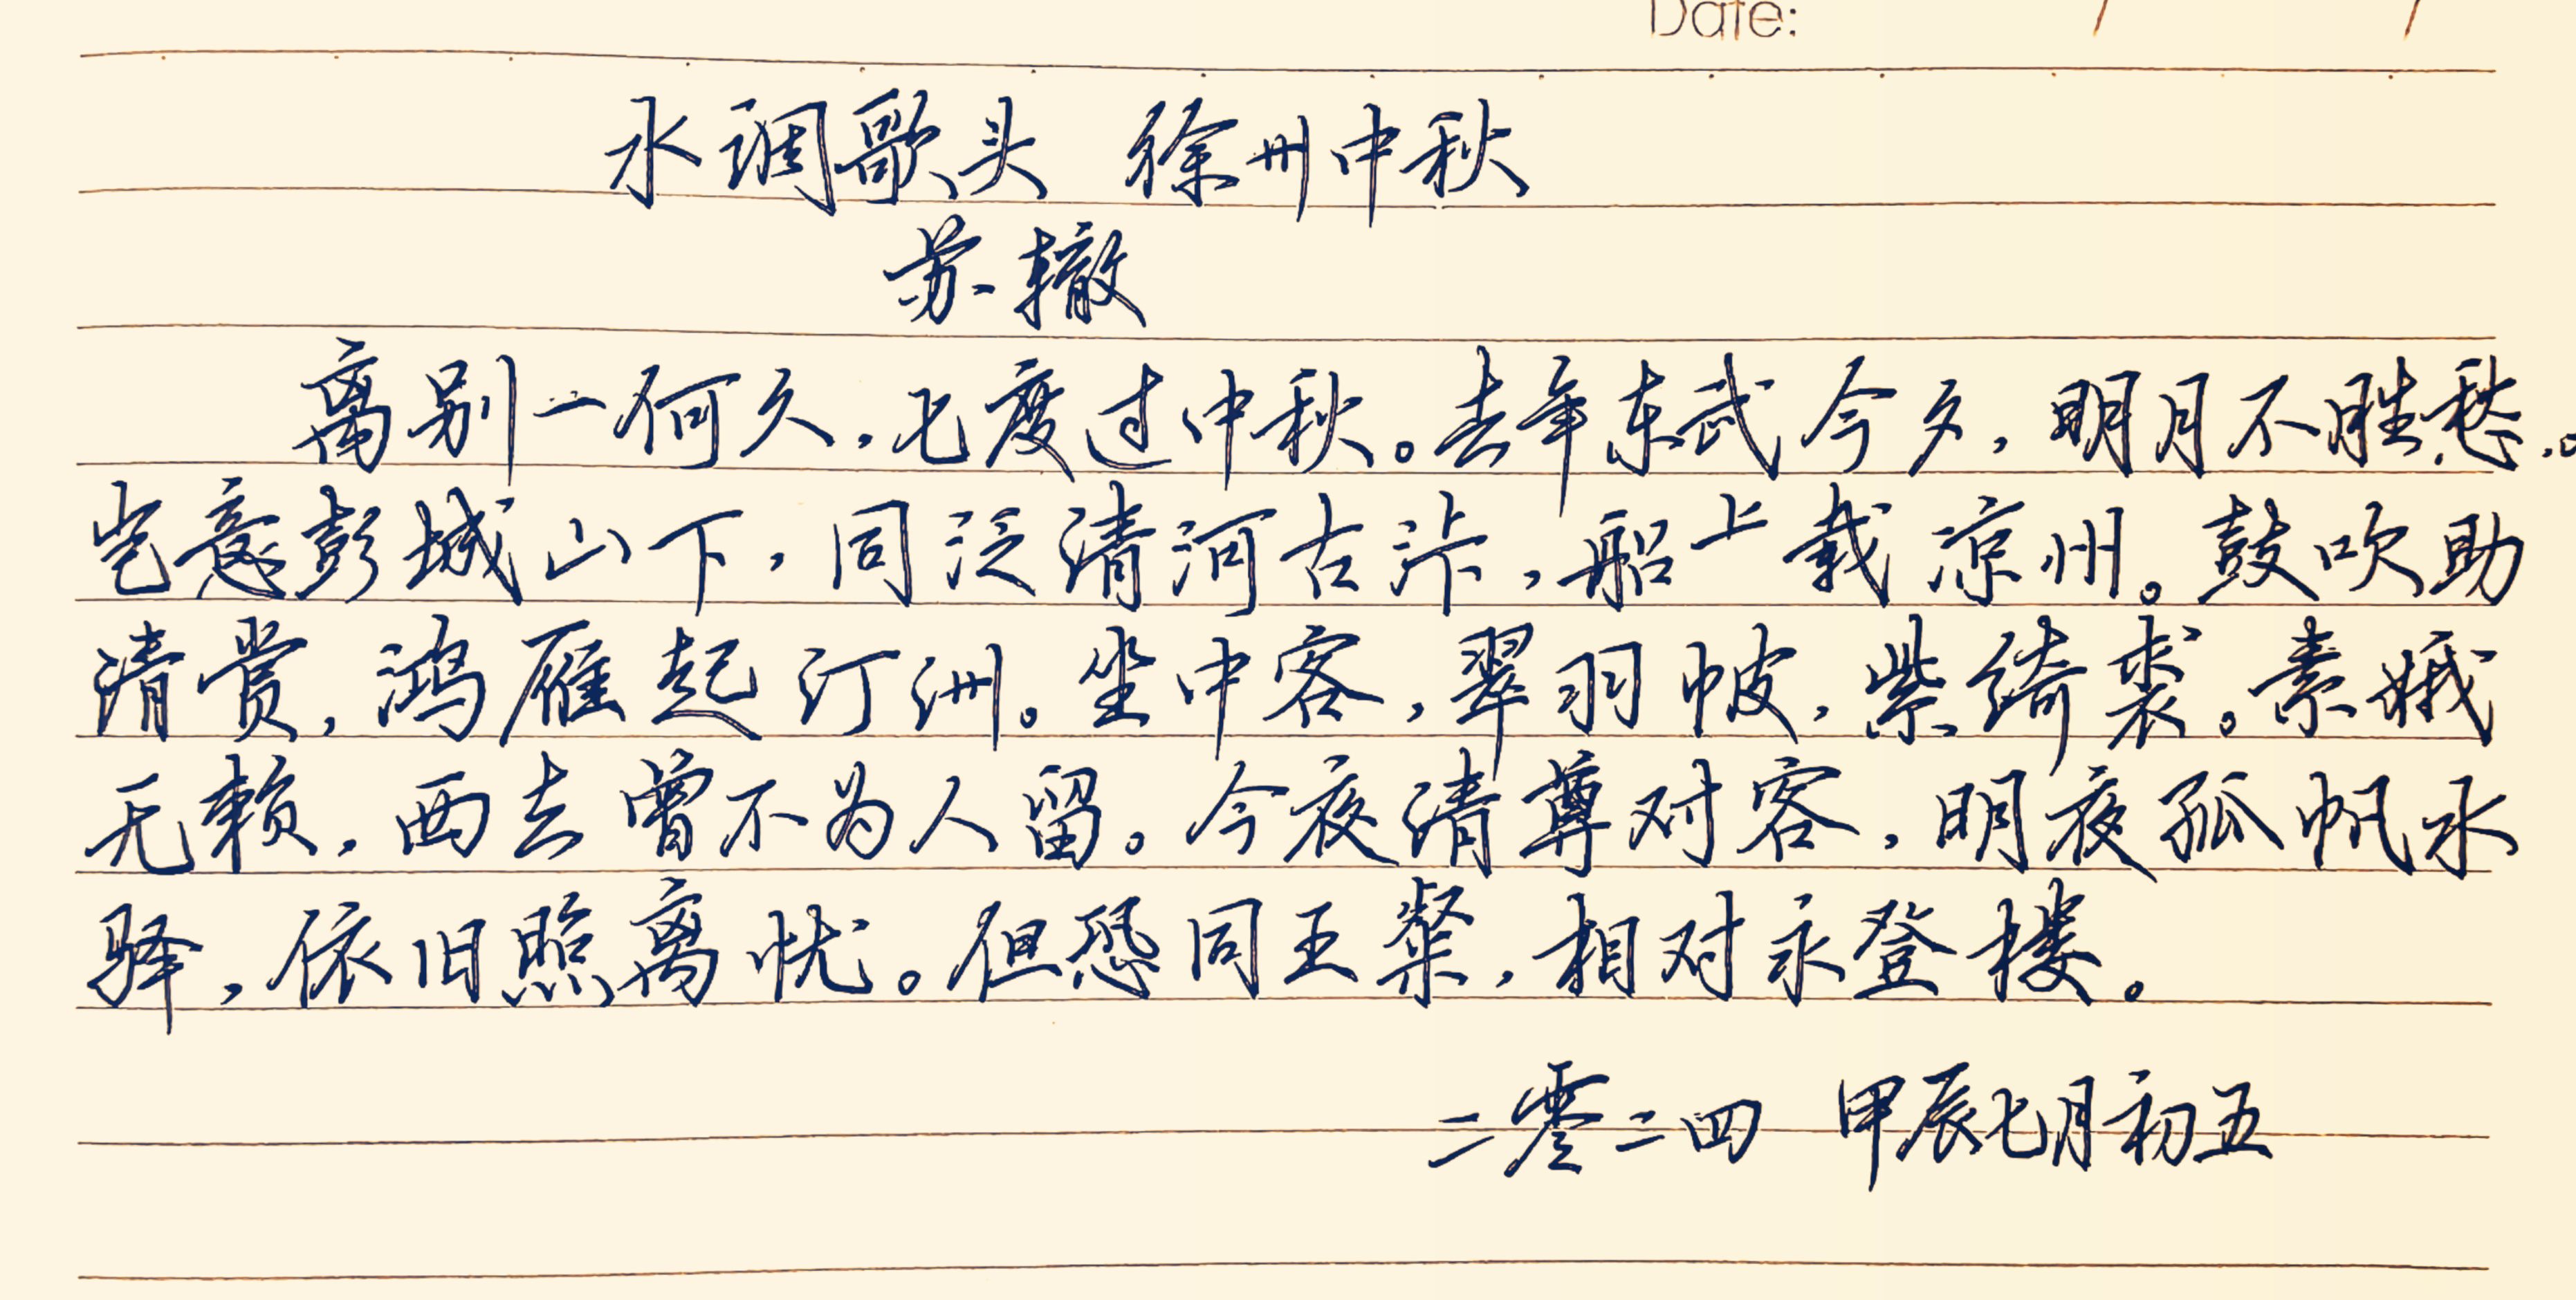 Date: / /
水调歌头 徐州中秋
苏辙
离别一何久，七度过中秋。去年东武今夕，明月不胜愁。
岂意彭城山下，同泛清河古汴，船上载凉州。鼓吹助
清赏，鸿雁起汀洲。坐中客，翠羽帔，紫绮裘。素娥
无赖，西去曾不为人留。今夜清尊对客，明夜孤帆水
驿，依旧照离忧。但恐同王粲，相对永登楼。
二零二四 甲辰七月初五